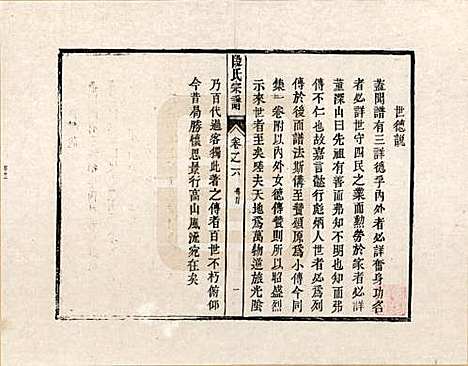 世德說
蓋聞譜有三詳德孚內外者必詳奮身功名
者必詳世守四民之業而勲勞於家者必詳
董深山曰先祖有善而弗知不明也知而弗
傳不仁也故嘉言懿行彪炳人世者必為列
傳於後而譜法斯備至贊頌原為小傳今同
集一卷附以內外女德傳贊則所以昭盛烈
示來世者至矣
夫天地為萬物逆旅光陰
乃百代過客獨此著之傳者百世不朽俯仰
今昔曷勝懷思景行高山風流宛在矣
段氏宗譜
卷之六
一